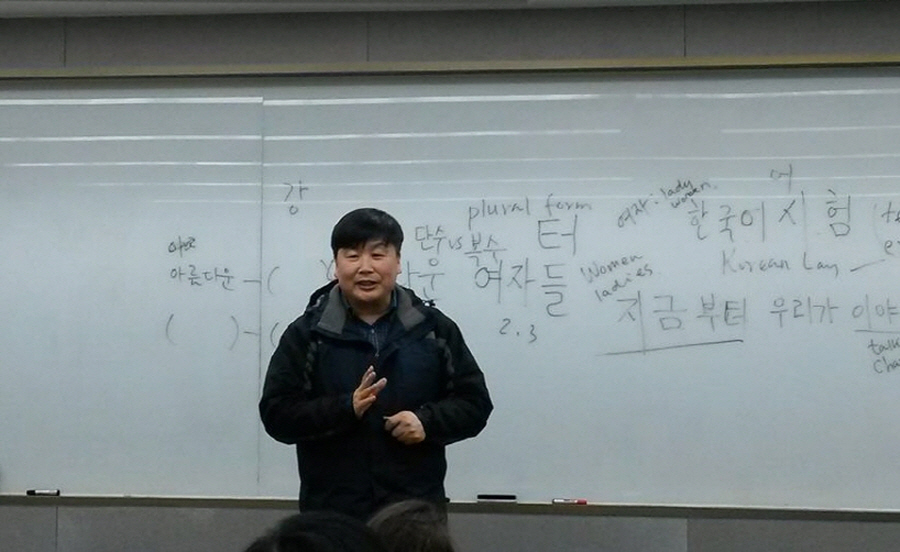 강
plural form
단수 vs 복수
터
여자 : lady
women.
어
한국어 시험
아름다운 - (
여자들
Women
ladies
Korean Lan
( ) - (
2.3
지금부터 우리가 이야
talk